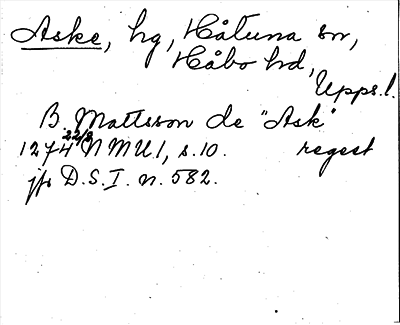 Aske, hg, Håtuna sn,
Håbo hd,
Upps.l.
B. Mattsson de "Ask"
1274 22/3 NMU1, s.10. regest
jfr D.S.I. n. 582.